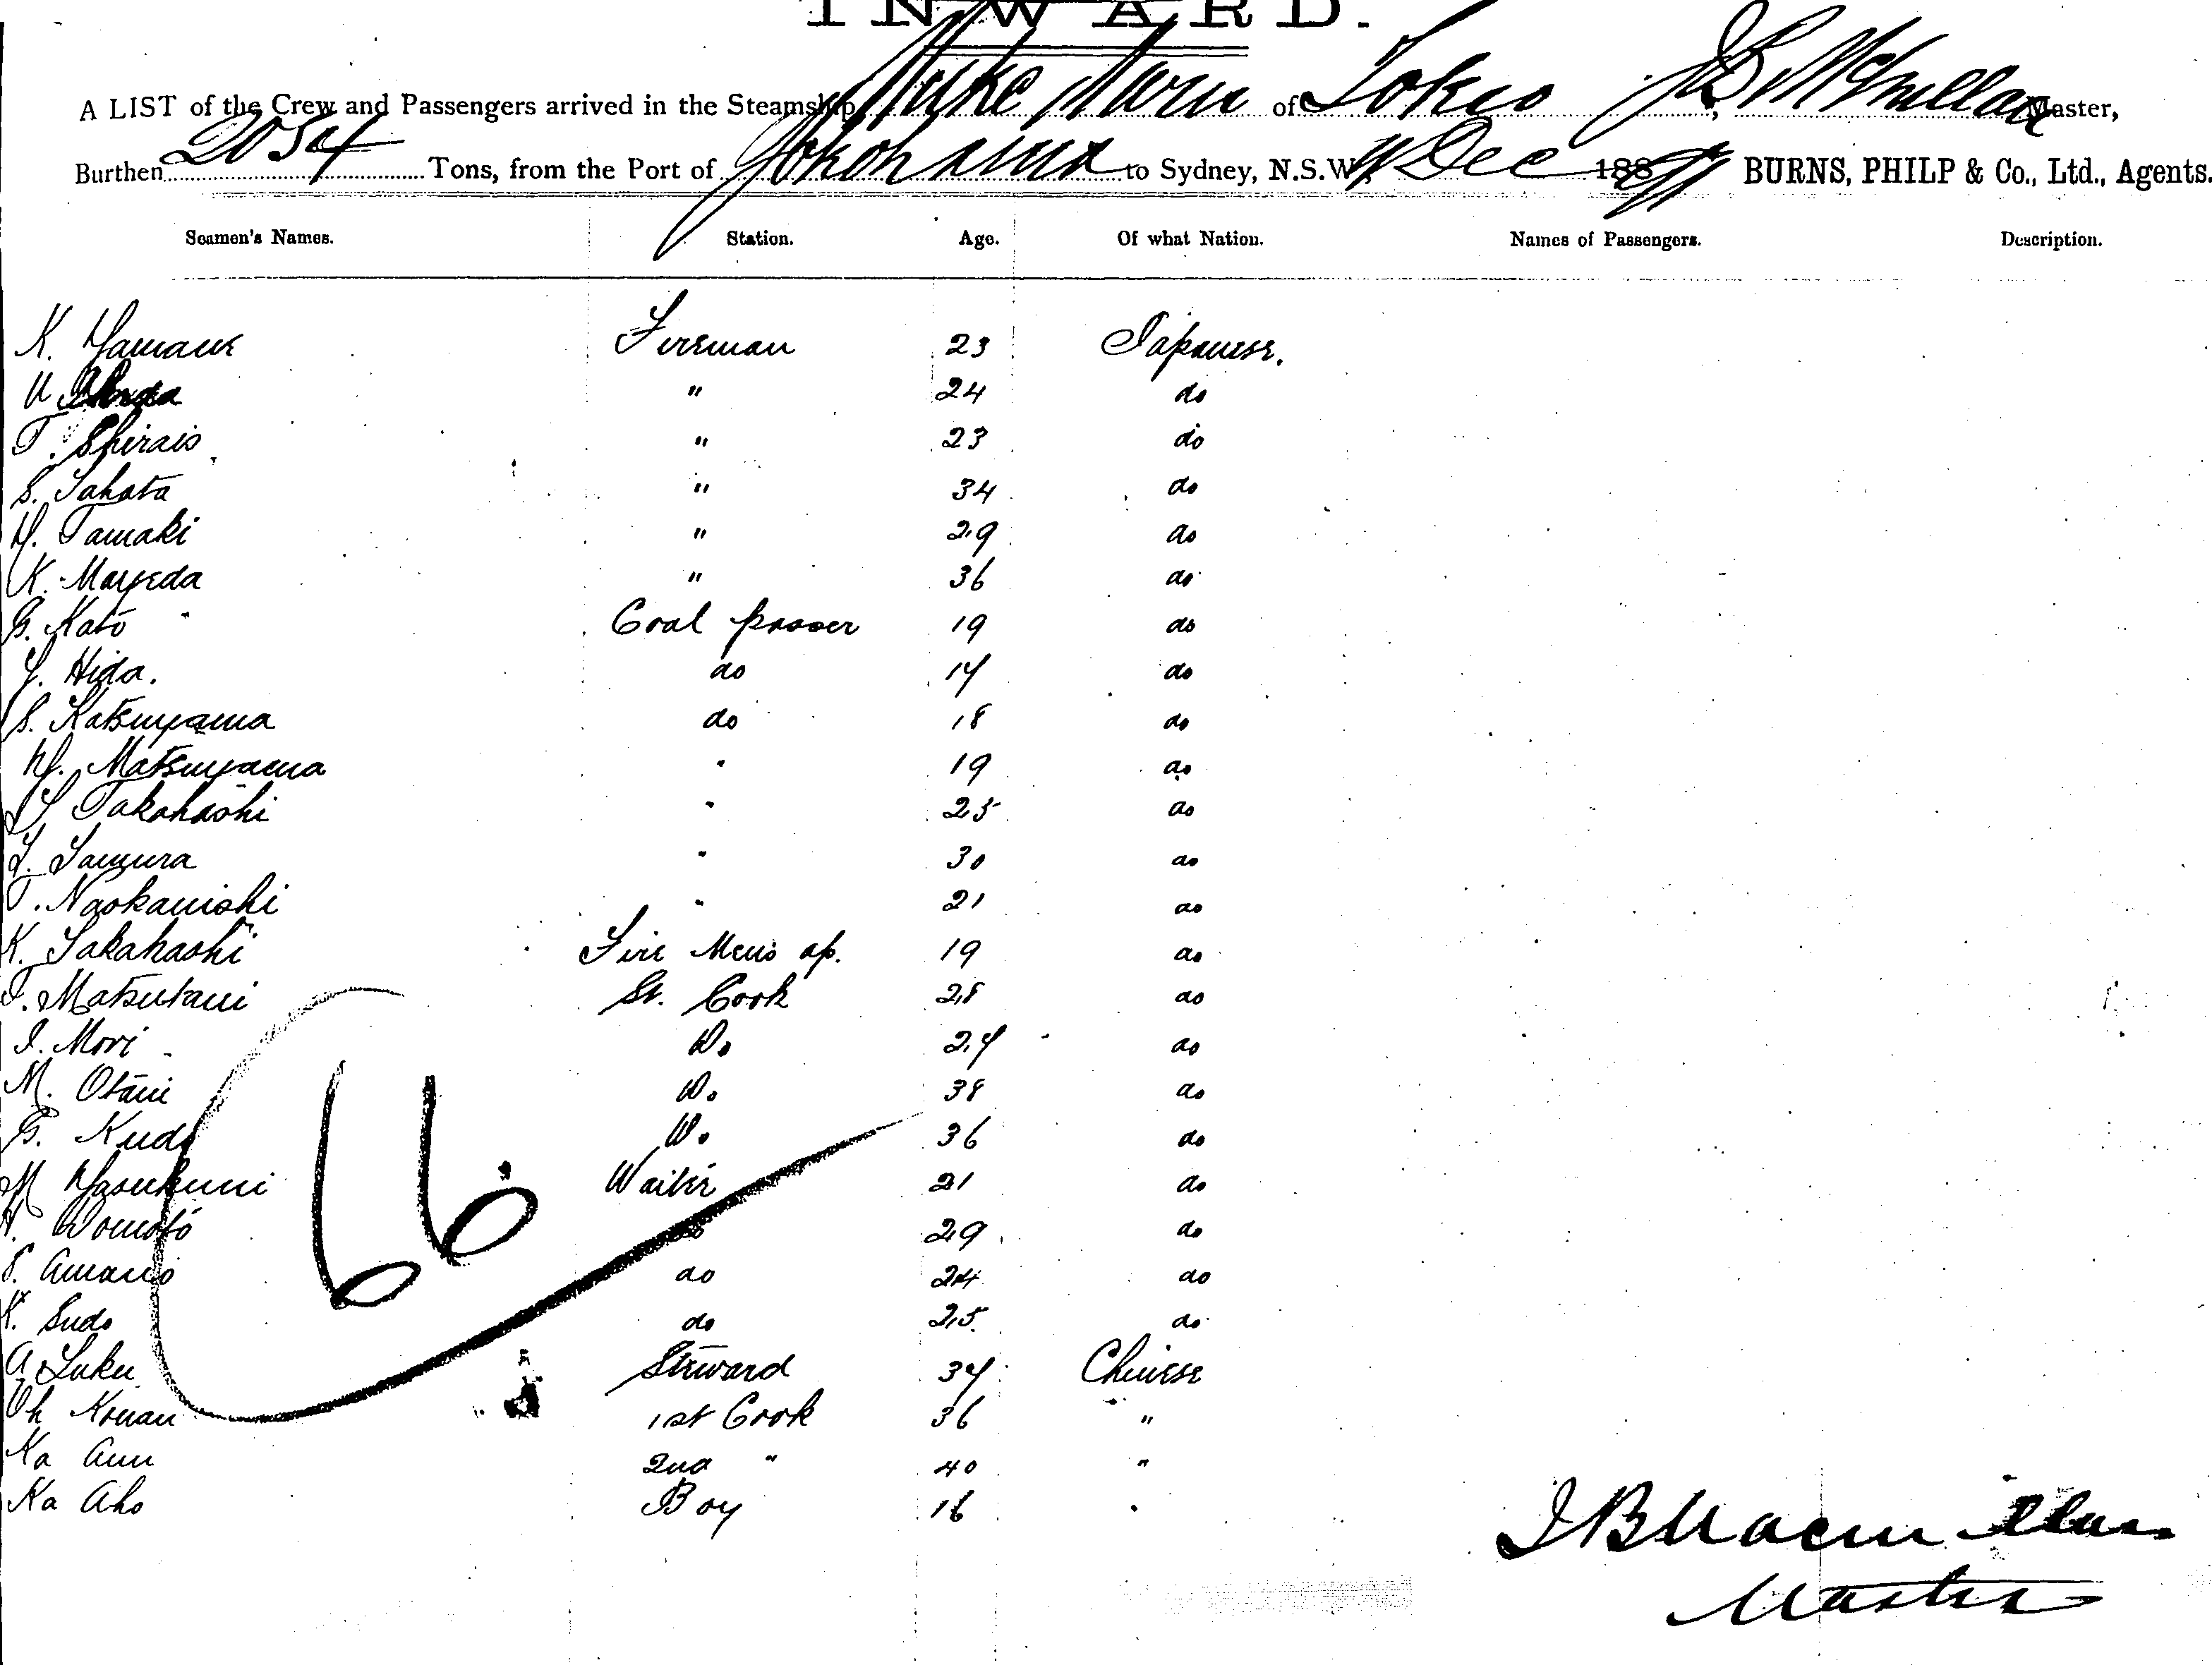 INWARD.
A LIST of the Crew and Passengers arrived in the Steamship Miike Maru of Tokio, J B McMillan Master,
Burthen 2054 Tons, from the Port of Yokohama to Sydney, N.S.W., Dec 188 97 BURNS, PHILP & Co., Ltd., Agents.
Seamen's Names. Station. Age. Of what Nation. Names of Passengers. Description.
K. Yamane Fireman 23 Japanese.
U " 24 do
T. Shirais " 23 do
S. Takata " 34 do
H. Tamaki " 29 do
K. Mayeda " 36 do
G. Kato Coal passer 19 do
Y. Hida. do 17 do
S. Katsuyama do 18 do
M. Matsuyama " 19 do
Y Takahashi " 25 do
T. Tamura " 30 do
T. Naokanishi " 21 do
K. Takahashi Fire Men's ap. 19 do
T. Matsutani St. Cook 28 do
I. Mori Do 27 do
M. Otani Do 38 do
G. Kudo Do 36 do
M Yasukuni Waiter 21 do
Womoto do 29 do
Amano do 24 do
K. Sudo do 25 do
A Luku Steward 37 Chinese
Oh Konan 1st Cook 36 "
Ka Aun 2nd " 40 "
Ka Aho Boy 16 "
66.
J B Macmillan
Master